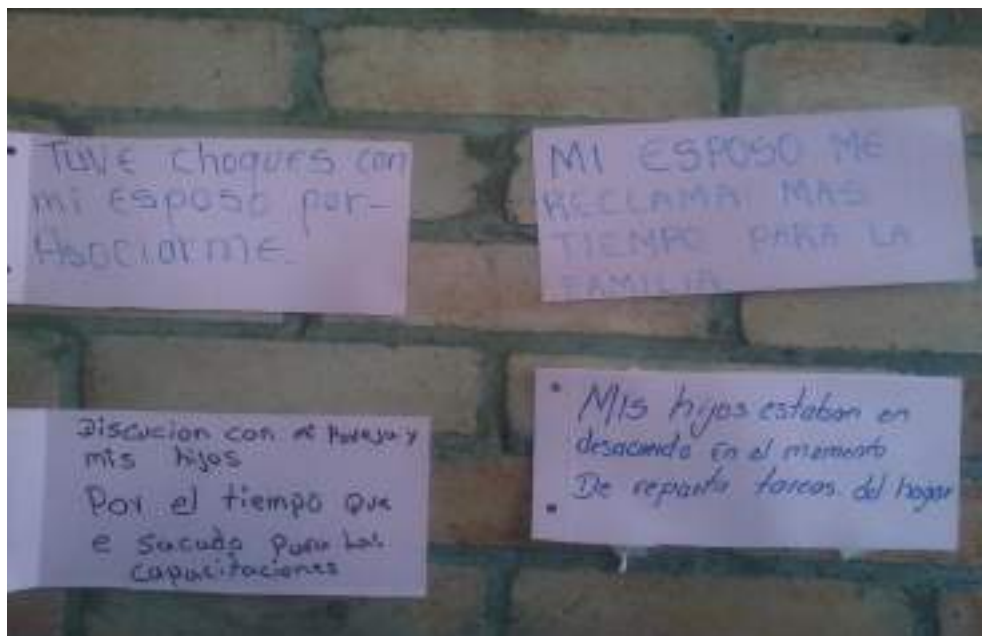 TUVE choques con
mi esposo por-
Asociarme.
MI ESPOSO ME
RECLAMA MAS
TIEMPO PARA LA
FAMILIA
Discucion con
mis hijos
Por el tiempo que
e sacado para las
capacitaciones
Mis hijos estaban en
desacuerdo En el momento
De repartir tareas del hogar